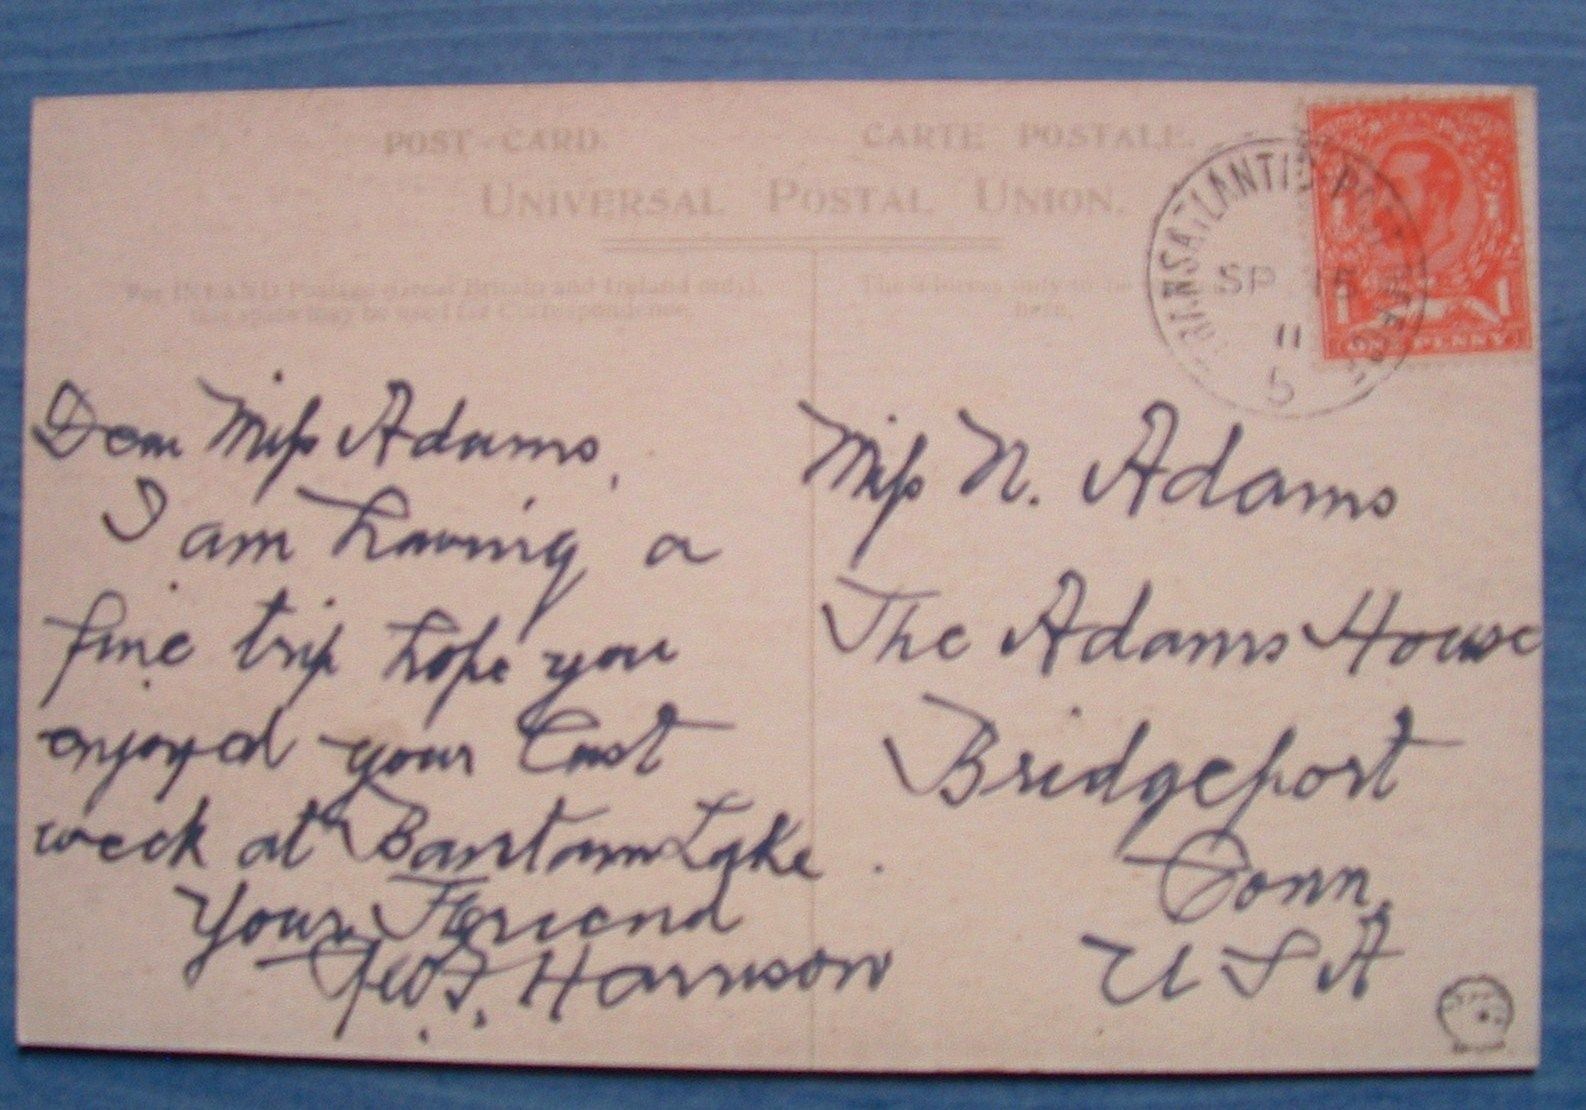 POST-CARD. CARTE POSTALE.
UNIVERSAL POSTAL UNION.
For INLAND Postage (Great Britain and Ireland only),
this space may be used for Correspondence.
The address only to be
here.
TRANSATLANTIC POST OFFICE
SP 15
11
5
ONE PENNY
Dear Miss Adams,
I am having a
fine trip hope you
enjoyed your last
week at Bantam Lake.
Your Friend
Geo. F. Harrison
Miss N. Adams
The Adams House
Bridgeport
Conn.
U S A